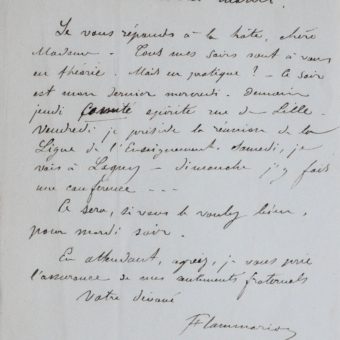 Je vous réponds à la hâte, chère
Madame - Tous mes soirs sont à vous
en théorie. Mais en pratique? - Ce soir
est mon dernier mercredi. Demain
jeudi Comité spirite rue de Lille.
Vendredi je préside la réunion de la
Ligue de l'Enseignement. Samedi, je
vais à Lagny - dimanche j'y fais
une conférence - - -
Ce sera, si vous le voulez bien,
pour mardi soir.
En attendant, agréez, je vous prie
l'assurance de mes sentiments fraternels
Votre dévoué
Flammarion